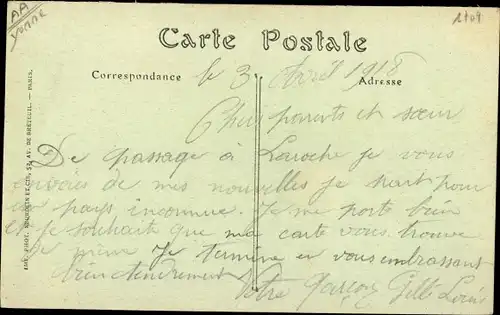 AA
YONNE
Carte Postale
Correspondance
Adresse
le 3 Avril 1918
Chers parents et sœur
De passage à Laroche je vous
envoies de mes nouvelles je part pour
un pays inconnue. Je me porte bien
et je souhaite que ma carte vous trouve
de même Je termine en vous embrassant
bien tendrement
Votre garçon Louis
IMP. PHOT. ET CIE, 52, AV. DE BRETEUIL. — PARIS.